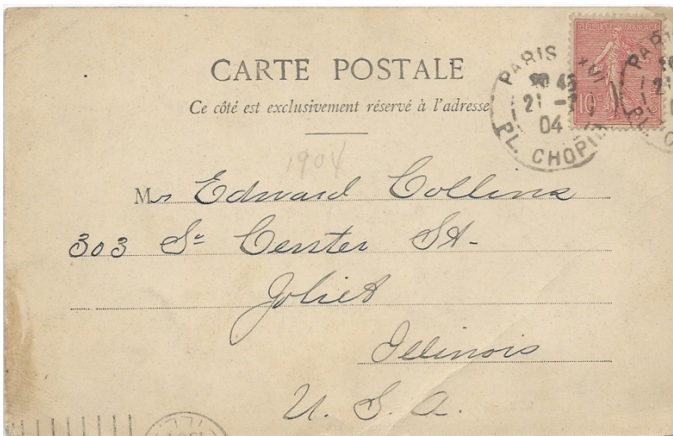 CARTE POSTALE
Ce côté est exclusivement réservé à l'adresse
PARIS XVI
21
04
PL. CHOPIN
10c
PARIS
1904
Mr Edward Collins
303 So Center St-
Joliet
Illinois
U. S. A.